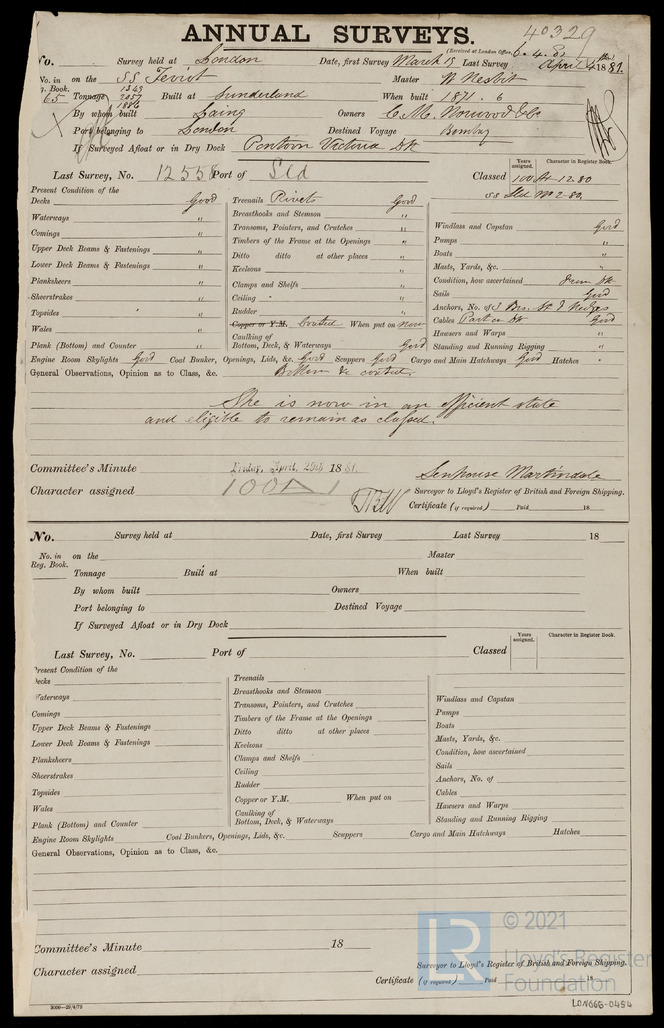 ANNUAL SURVEYS.
40329
(Received at London Office, 6.4.81
No. Survey held at London Date, first Survey March 15 Last Survey April 4 1881.
No. in Reg. Book. 65 on the SS Teviot Master W Nesbit
Tonnage 1343 2057 1886 Built at Sunderland When built 1871.6
By whom built Laing Owners C. M. Norwood & Co
Port belonging to London Destined Voyage Bombay
If Surveyed Afloat or in Dry Dock Pontoon Victoria Dk
Last Survey, No. 12558 Port of Sld Classed
Years assigned. Character in Register Book.
100A1 12.80
SS Sld No 2-80
Present Condition of the
Decks Good
Waterways "
Comings "
Upper Deck Beams & Fastenings "
Lower Deck Beams & Fastenings "
Planksheers "
Sheerstrakes "
Topsides "
Wales "
Plank (Bottom) and Counter "
Treenails Rivets Good
Breasthooks and Stemson "
Transoms, Pointers, and Crutches "
Timbers of the Frame at the Openings "
Ditto ditto at other places "
Keelsons "
Clamps and Shelfs "
Ceiling "
Rudder "
Copper or Y.M. Coated When put on now
Caulking of Bottom, Deck, & Waterways Good
Windlass and Capstan Good
Pumps "
Boats "
Masts, Yards, &c. "
Condition, how ascertained From Dk
Sails Good
Anchors, No. of 3 Brs. St & Kedges
Cables Part on Dk Good
Hawsers and Warps "
Standing and Running Rigging "
Engine Room Skylights Good Coal Bunker, Openings, Lids, &c. Good Scuppers Good Cargo and Main Hatchways Good Hatches "
General Observations, Opinion as to Class, &c. Bottom &c coated.
She is now in an efficient state
and eligible to remain as classed.
Committee's Minute Friday, April, 29th 1881.
Character assigned 100A1
Senhouse Martindale
Surveyor to Lloyd's Register of British and Foreign Shipping.
Certificate (if required) Paid 18
No. Survey held at Date, first Survey Last Survey 18
No. in Reg. Book. on the Master
Tonnage Built at When built
By whom built Owners
Port belonging to Destined Voyage
If Surveyed Afloat or in Dry Dock
Last Survey, No. Port of Classed
Years assigned. Character in Register Book.
Present Condition of the
Decks
Waterways
Comings
Upper Deck Beams & Fastenings
Lower Deck Beams & Fastenings
Planksheers
Sheerstrakes
Topsides
Wales
Plank (Bottom) and Counter
Treenails
Breasthooks and Stemson
Transoms, Pointers, and Crutches
Timbers of the Frame at the Openings
Ditto ditto at other places
Keelsons
Clamps and Shelfs
Ceiling
Rudder
Copper or Y.M. When put on
Caulking of Bottom, Deck, & Waterways
Windlass and Capstan
Pumps
Boats
Masts, Yards, &c.
Condition, how ascertained
Sails
Anchors, No. of
Cables
Hawsers and Warps
Standing and Running Rigging
Engine Room Skylights Coal Bunkers, Openings, Lids, &c. Scuppers Cargo and Main Hatchways Hatches
General Observations, Opinion as to Class, &c.
Committee's Minute 18
Character assigned
Surveyor to Lloyd's Register of British and Foreign Shipping.
Certificate (if required) Paid 18
3000—29/4/79
LR © 2021
Lloyd's Register
Foundation
LON668-0454